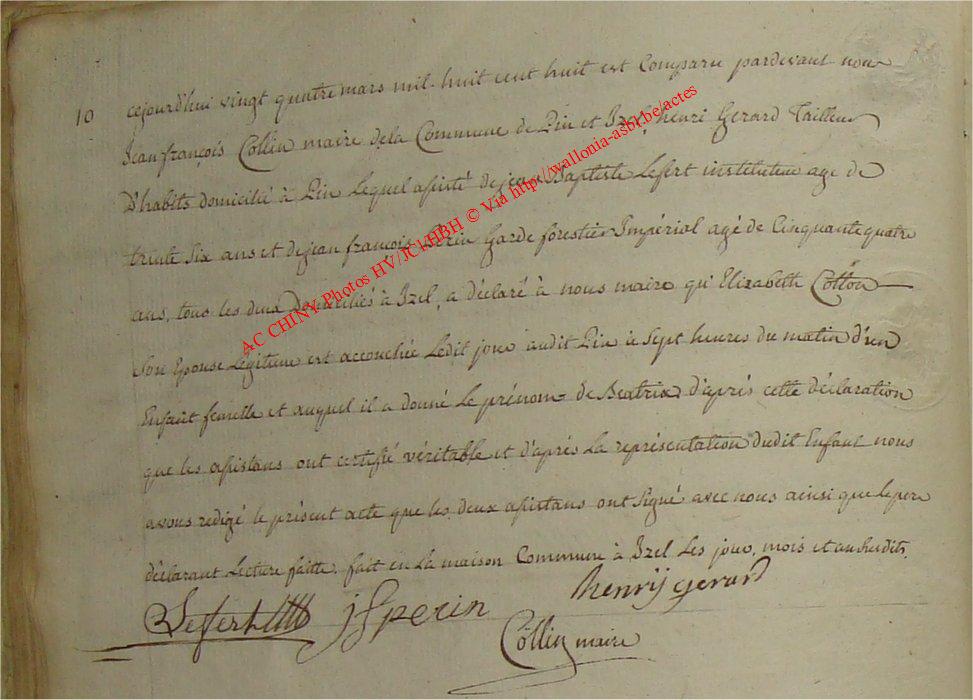 10 cejourd'hui vingt quatre mars mil huit cent huit est Comparu pardevant nous
Jean françois Collin maire dela Commune de Pin et Izel, henri Gerard Tailleur
D'habits domicilié à Pin Lequel assisté dejean Baptiste Lefert instituteur age de
trente Six ans et dejean françois Perin Garde forestier Impérial agé de Cinquantequatre
ans, tous les deux Domiciliés à Izel, a déclaré à nous maire qu'Elizabeth Collon
Son Epouse Legitime est accouchée Ledit jour audit Pin à Sept heures du matin d'un
Enfant femelle et auquel il a donné Le prénom de Beatrix d'après cette déclaration
que les assistans ont certifié véritable et d'après La représentation dudit Enfant nous
avons redigé le présent acte que les deux assistans ont Signé avec nous ainsi que lepere
déclarant Lecture faitte. fait en La maison Commune à Izel Les jour, mois et an susdits.
Lefert jf perin henrij gerard
Collin maire
AC CHINY Photos HV/JCl/HBH © Via http://wallonia-asbl.be/actes